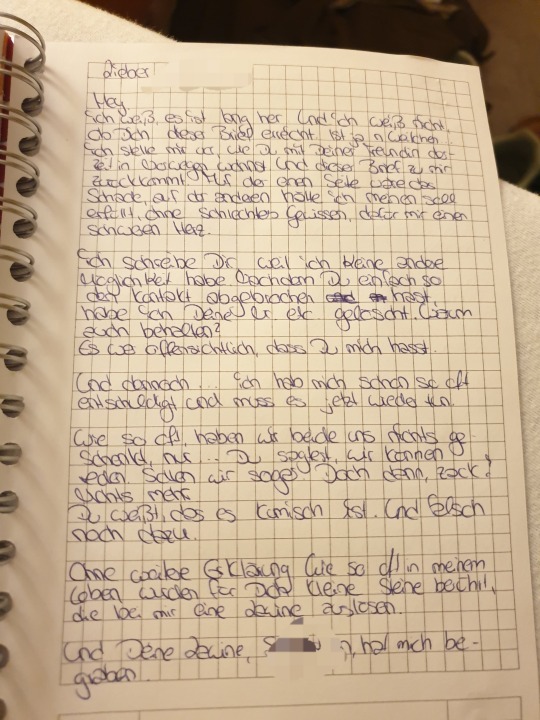 Lieber
Hey,
ich weiß, es ist lang her. Und ich weiß nicht,
ob Dich dieser Brief erreicht. Ist ja 'n
Ich stelle mir vor, wie Du mit Deiner Freundin der-
zeit in Norwegen wohnst und dieser Brief zu mir
zurückkommt. Auf der einen Seite wäre das
Schade, auf der anderen hätte ich meinen Soll
erfüllt, ohne schlechtes Gewissen, dafür mit einen
schweren Herz.
Ich schreibe Dir, weil ich keine andere
Möglichkeit habe. Nachdem Du einfach so
den Kontakt abgebrochen hast,
habe ich Deine Nr etc gelöscht. Warum
auch behalten?
Es war offensichtlich, dass Du mich hasst.
Und dannach ... Ich hab mich schon so oft
entschuldigt und muss es jetzt wieder tun.
Wie so oft, haben wir beide uns nichts ge-
schenkt, nur ... Du sagtest, wir können
reden. Sollen wir sogar. Doch dann, zack!
Nichts mehr.
Du weißt, das es komisch ist. Und falsch
noch dazu.
Ohne weitere Erklärung. Wie so oft in meinem
Leben wurden für Dich kleine Steine
die bei mir eine Lawine auslösen.
Und Deine Lawine, hat mich be-
graben.